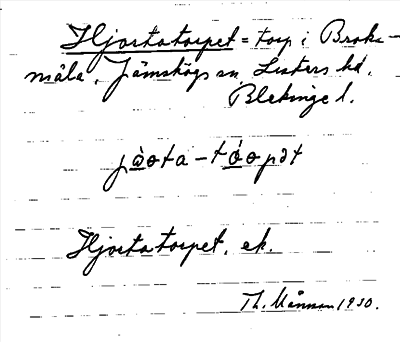 Hjortatorpet = torp i Broka-
måla, Jämshögs sn Listers hd.
Blekinge l.
jòɵta-tóɵpət
Hjortatorpet, ek.
Th. Månsson 1930.